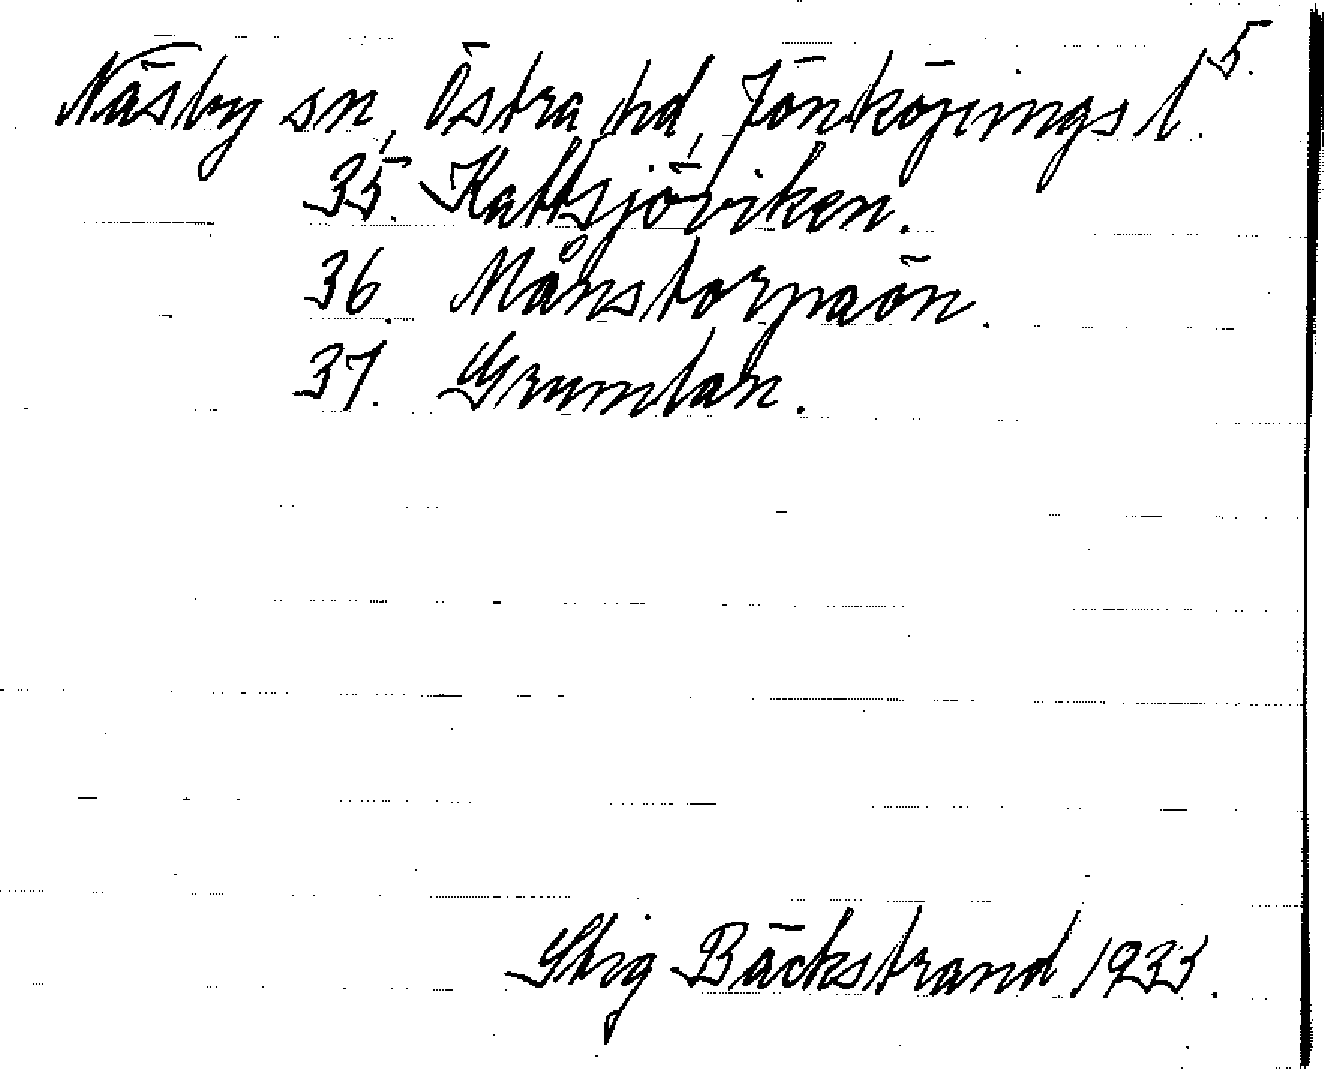 5.
Näsby sn, Östra hd, Jönköpings l.
35. Kattsjöviken.
36. Månstorpaön.
37. Grumlan.
Stig Bäckstrand 1933.